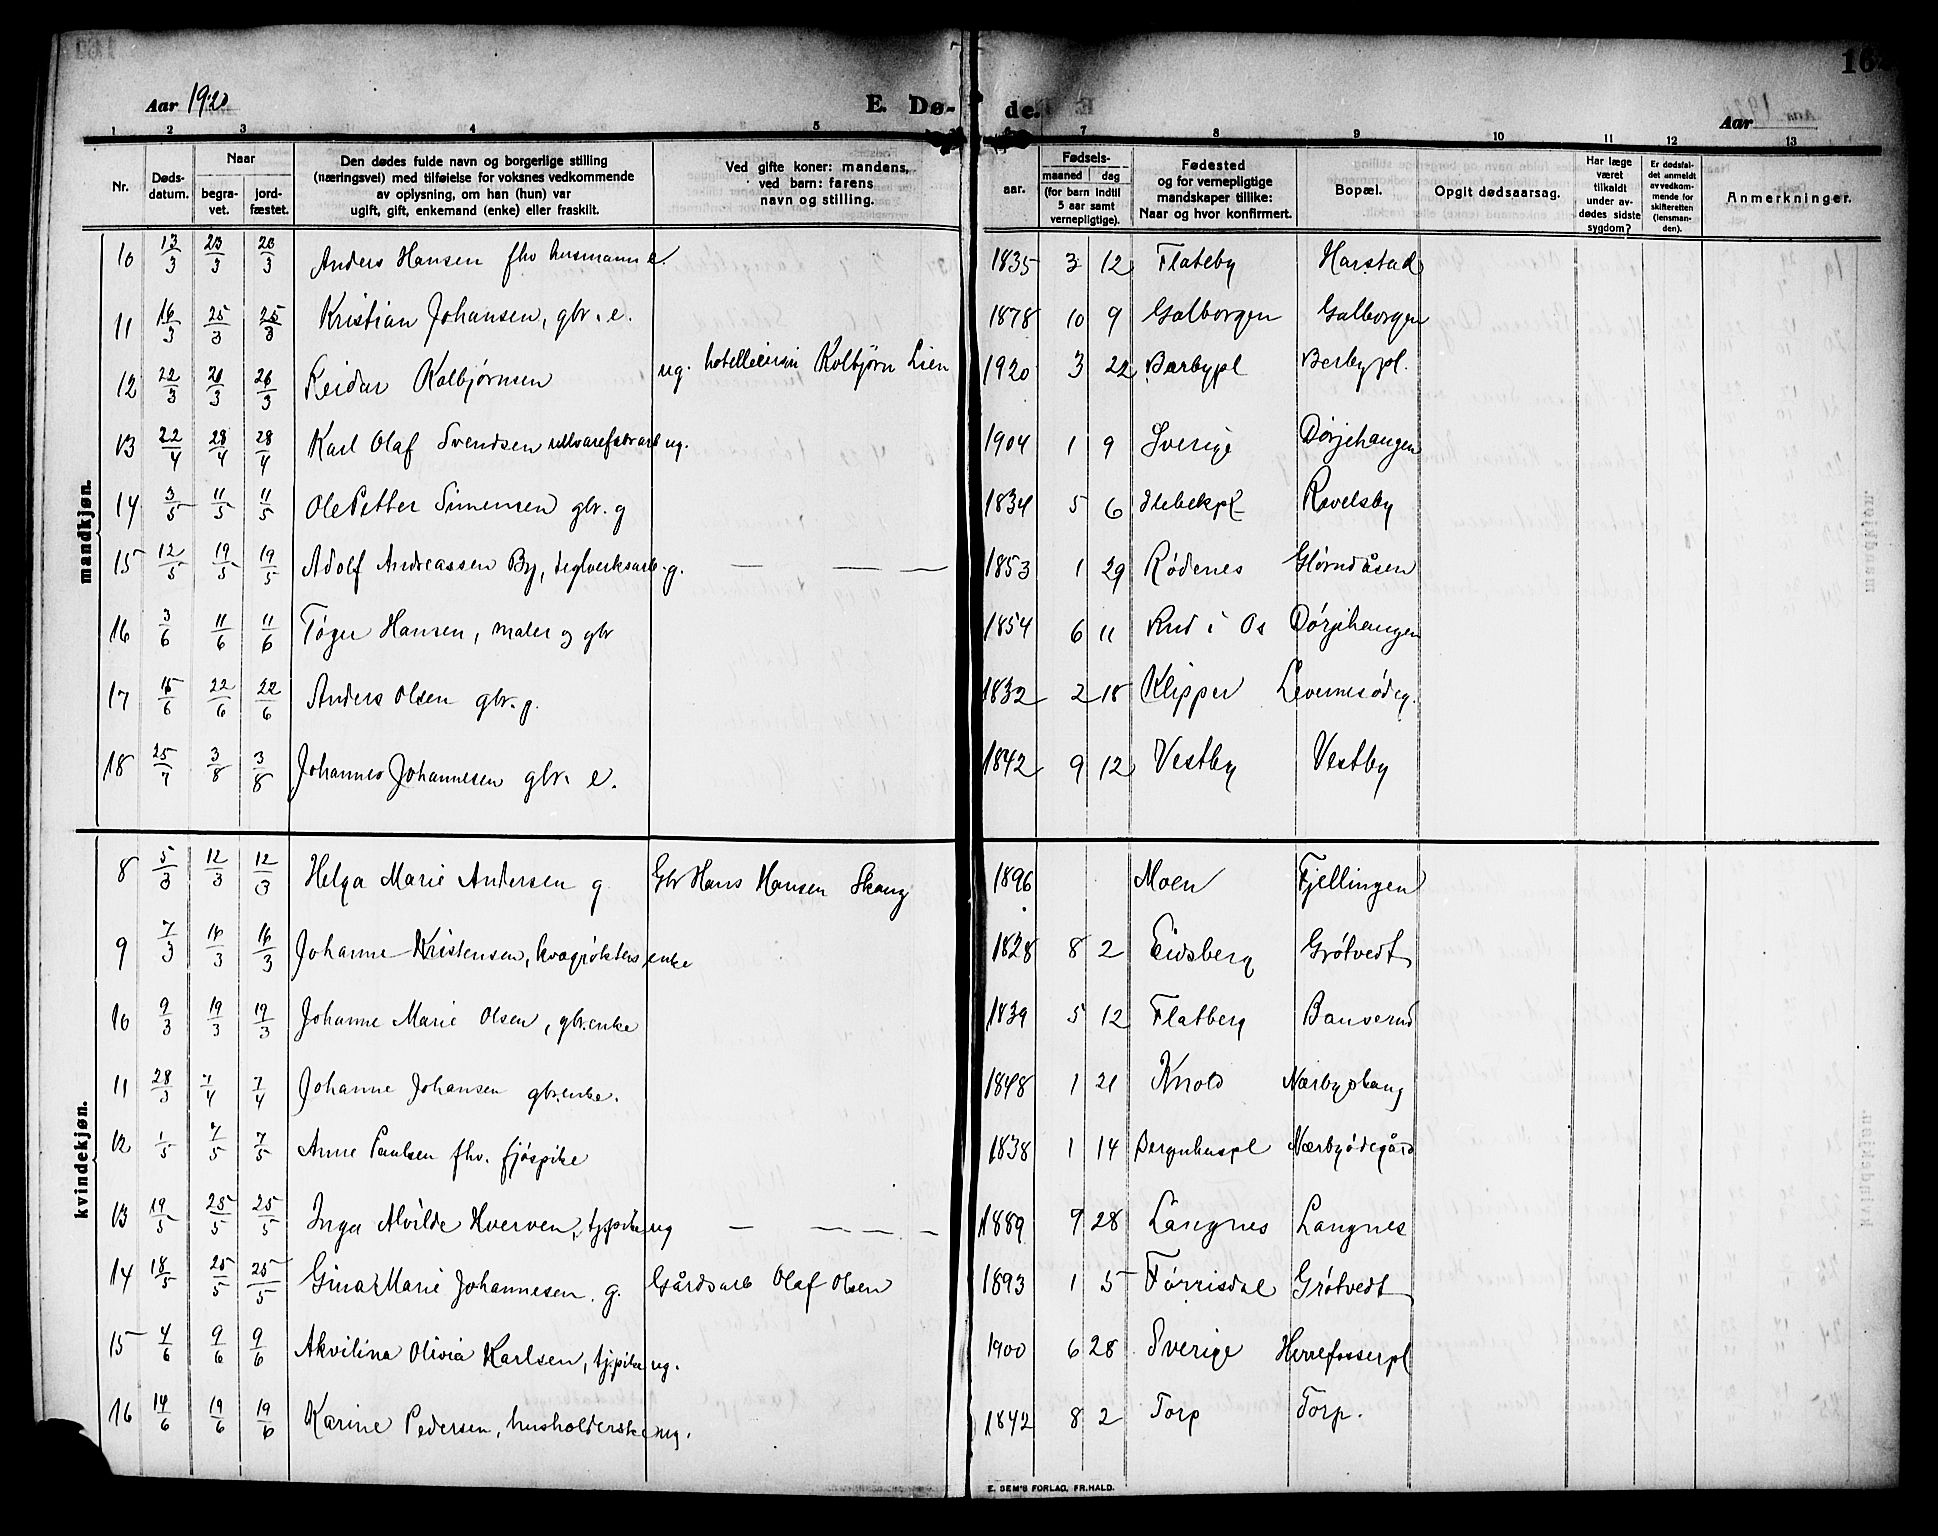 Aar 1920 E. Dø- de. Aar
1 2 3 4 5 7 8 9 10 11 12 13
Nr. Døds-datum. Naar begra-vet. jord-fæstet. Den dødes fulde navn og borgerlige stilling (næringsvei) med tilføielse for voksnes vedkommende av oplysning, om han (hun) var ugift, gift, enkemand (enke) eller fraskilt. Ved gifte koner: mandens, ved barn: farens navn og stilling. aar. Fødsels- maaned dag (for barn indtil 5 aar samt vernepligtige). Fødested og for vernepligtige mandskaper tillike: Naar og hvor konfirmert. Bopæl. Opgit dødsaarsag. Har læge været tilkaldt under av-dødes sidste sygdom? Er dødsfal-det anmeldt av vedkom-mende for skifteretten (lensman-den). Anmerkninger.
mandkjøn.
10 13/3 23/3 23/3 Anders Hansen fhv husmann e. 1835 3 12 Flateby Harstad
11 16/3 25/3 25/3 Kristian Johansen, gbr. e. 1878 10 9 Galborgen Galborgen
12 22/3 26/3 26/3 Reidar Kolbjørnsen ug. Kolbjørn Lien 1920 3 22 Berbypl Berbypl.
13 22/4 28/4 28/4 Karl Olaf Svendsen ullvarefabrarb ug. 1904 1 9 Sverige Dørjehaugen
14 3/5 11/5 11/5 Ole Petter Simensen gbr. g 1834 5 6 Slebekpl Revelsby
15 12/5 19/5 19/5 Adolf Andreassen By, teglverksarb. g. — — — 1853 1 29 Rødenes Glørudåsen
16 3/6 11/6 11/6 Tøger Hansen, maler og gbr 1854 6 11 Rud i Os Dørjehaugen
17 15/6 22/6 22/6 Anders Olsen gbr. g. 1832 2 18 Klipper
18 25/7 3/8 3/8 Johannes Johannesen gbr. e. 1842 9 12 Vestby Vestby
kvindekjøn.
8 5/3 12/3 12/3 Helga Marie Andersen g. Gbr Hans Hansen Skaug 1896 Moen Fjellingen
9 7/3 16/3 16/3 Johanne Kristensen, kvægrøkters enke 1828 8 2 Eidsberg Grøtvedt
10 9/3 19/3 19/3 Johanne Marie Olsen, gbr.enke 1839 5 12 Flatberg Banserud
11 28/3 7/4 7/4 Johanne Johansen gbr.enke. 1848 1 21 Knold Nærbyshaug
12 1/5 7/5 7/5 Anne Paulsen fhv. fjøspike 1838 1 14 Nærbyødegård
13 19/5 25/5 25/5 Inga Alvilde Hverven, tj.pike ug — — — — 1889 9 28 Langnes Langnes
14 18/5 25/5 25/5 Gina Marie Johannesen. g. Gårdsarb Olaf Olsen 1893 1 5 Førrisdal Grøtvedt
15 4/6 9/6 9/6 Akvilina Olivia Karlsen, tj.pike ug. 1900 6 28 Sverige Herrefosserpl
16 14/6 19/6 19/6 Karine Pedersen, husholderske ug. 1842 8 2 Torp Torp.
E. SEM'S FORLAG, FR.HALD.